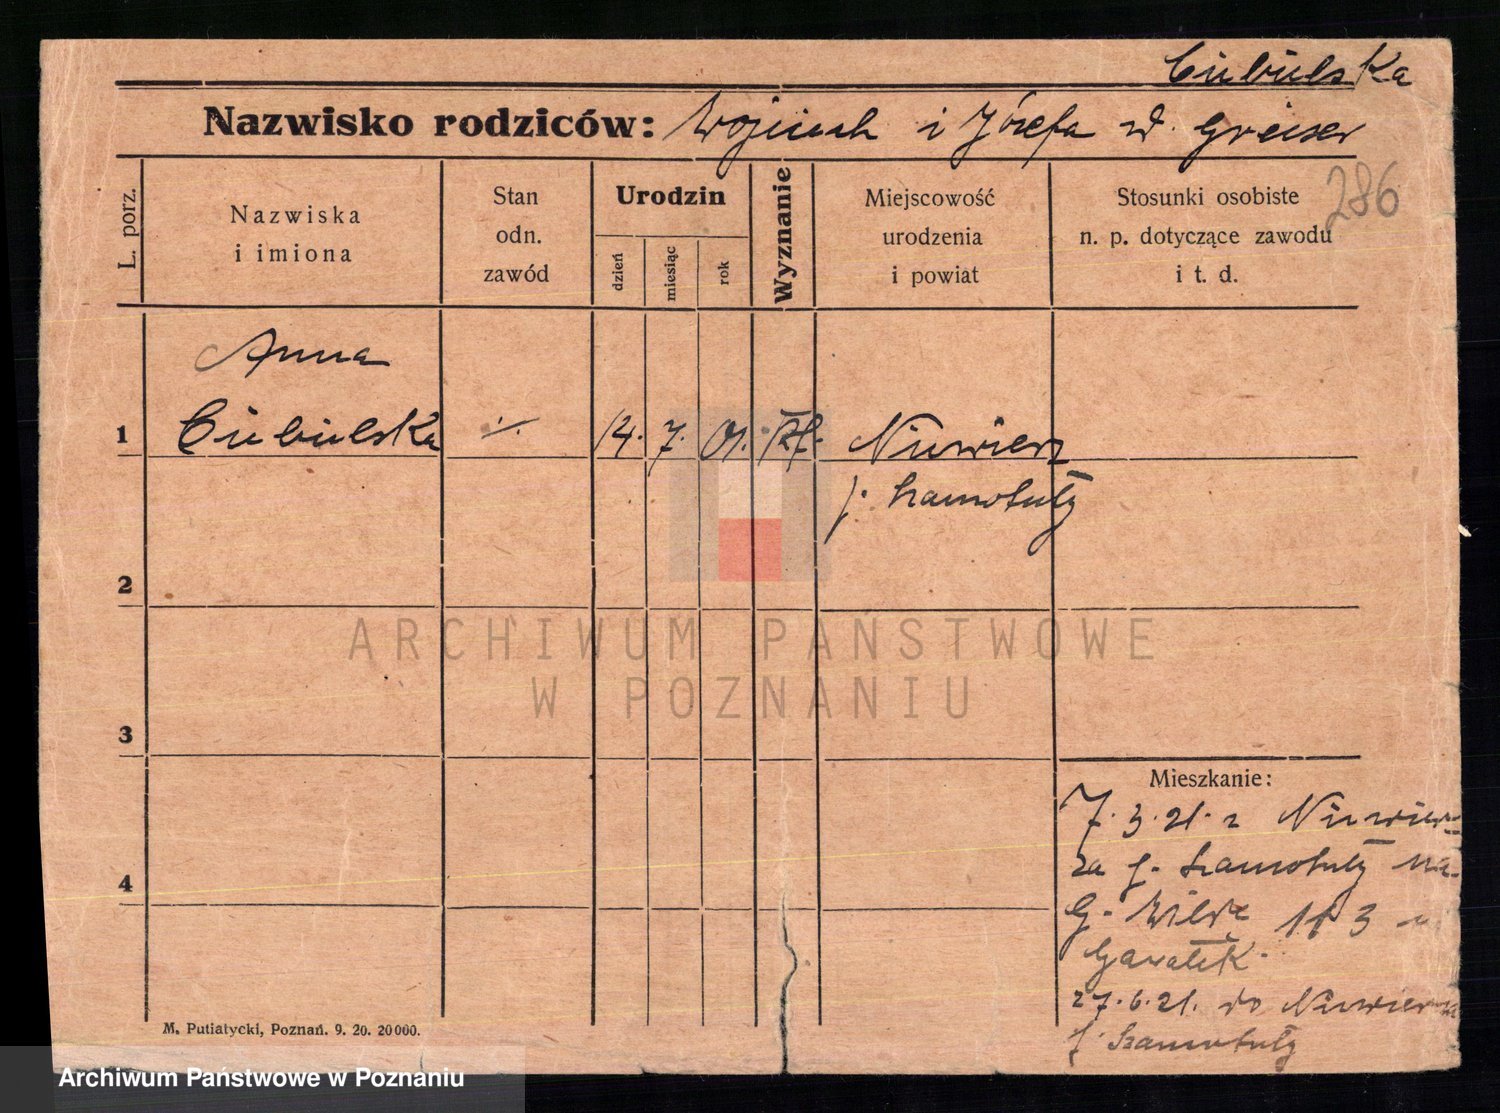 Cubulska
Nazwisko rodziców: Wojciech i Józefa d. Greiser
286
L. porz.
Nazwiska
i imiona
Stan
odn.
zawód
Urodzin
dzień
miesiąc
rok
Wyznanie
Miejscowość
urodzenia
i powiat
Stosunki osobiste
n. p. dotyczące zawodu
i t. d.
Anna
1 Cubulska ·/. 14. 7. 01. Rk. Nuwierz
p. Szamotuły
2
3
4
Mieszkanie:
7. 3. 21. z
p. Szamotuły na
G. Wilda 113
27. 6. 21. do
p. Szamotuły
M. Putiatycki, Poznań. 9. 20. 20000.
ARCHIWUM PAŃSTWOWE
W POZNANIU
Archiwum Państwowe w Poznaniu